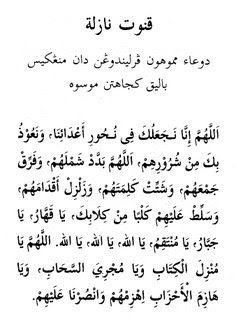 قنوت نازلة
دوعاء مموهون ڤرليندوڠن دان منڠكيس
باليق كجاهتن موسوه
اَللَّهُمَّ إِنَّا نَجْعَلُكَ فِى نُحُورِ أَعْدَائِنَا، وَنَعُوذُ
بِكَ مِنْ شُرُورِهِمْ، اَللَّهُمَّ بَدِّدْ شَمْلَهُمْ، وَفَرِّقْ
جَمْعَهُمْ، وَشَتِّتْ كَلِمَتَهُمْ، وَزَلْزِلْ أَقْدَامَهُمْ،
وَسَلِّطْ عَلَيْهِمْ كَلْبًا مِنْ كِلَابِكَ، يَا قَهَّارُ، يَا
جَبَّارُ، يَا مُنْتَقِمُ، يَا الله، يَا الله، يَا الله. اللَّهُمَّ يَا
مُنْزِلَ الْكِتَابِ وَيَا مُجْرِيَ السَّحَابِ، وَيَا
هَازِمَ الْأَحْزَابِ اِهْزِمْهُمْ وَانْصُرْنَا عَلَيْهِمْ.